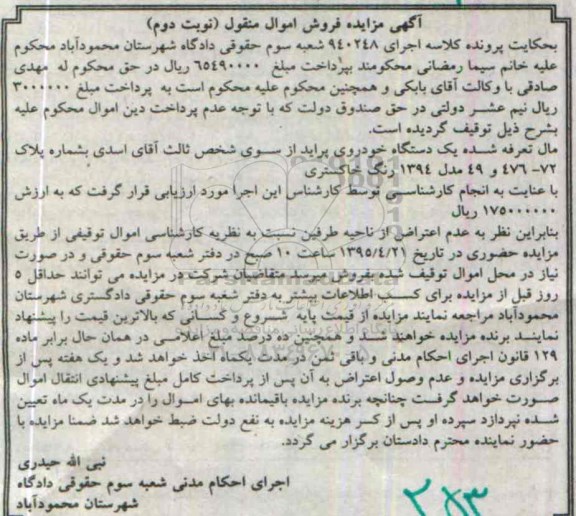 آگهی مزایده فروش اموال منقول (نوبت دوم)
بحکایت پرونده کلاسه اجرای ۹۴۰۲۴۸ شعبه سوم حقوقی دادگاه شهرستان محمودآباد محکوم
علیه خانم سیما رمضانی محکومند بپرداخت مبلغ ۶۵۴۹۰۰۰۰ ریال در حق محکوم له مهدی
صادقی با وکالت آقای بابکی و همچنین محکوم علیه محکوم است به پرداخت مبلغ ۳۰۰۰۰۰۰
ریال نیم عشر دولتی در حق صندوق دولت که با توجه عدم پرداخت دین اموال محکوم علیه
بشرح ذیل توقیف گردیده است.
مال تعرفه شده یک دستگاه خودروی پراید از سوی شخص ثالث آقای اسدی بشماره پلاک
۷۲- ۴۷۶ و ۴۹ مدل ۱۳۹۴ رنگ خاکستری
با عنایت به انجام کارشناسی توسط کارشناس این اجرا مورد ارزیابی قرار گرفت که به ارزش
۱۷۵۰۰۰۰۰۰ ریال
بنابراین نظر به عدم اعتراض از ناحیه طرفین نسبت به نظریه کارشناسی اموال توقیفی از طریق
مزایده حضوری در تاریخ ۱۳۹۵/۴/۲۱ ساعت ۱۰ صبح در دفتر شعبه سوم حقوقی و در صورت
نیاز در محل اموال توقیف شده بفروش میرسد متقاضیان شرکت در مزایده می توانند حداقل ۵
روز قبل از مزایده برای کسب اطلاعات بیشتر به دفتر شعبه سوم حقوقی دادگستری شهرستان
محمودآباد مراجعه نمایند مزایده از قیمت پایه شروع و کسانی که بالاترین قیمت را پیشنهاد
نمایند برنده مزایده خواهند شد و همچنین ده درصد مبلغ اعلامی در همان حال برابر ماده
۱۲۹ قانون اجرای احکام مدنی و باقی ثمن در مدت یکماه اخذ خواهد شد و یک هفته پس از
برگزاری مزایده و عدم وصول اعتراض به آن پس از پرداخت کامل مبلغ پیشنهادی انتقال اموال
صورت خواهد گرفت چنانچه برنده مزایده باقیمانده بهای اموال را در مدت یک ماه تعیین
شده نپردازد سپرده او پس از کسر هزینه مزایده به نفع دولت ضبط خواهد شد ضمنا مزایده با
حضور نماینده محترم دادستان برگزار می گردد.
نبی الله حیدری
اجرای احکام مدنی شعبه سوم حقوقی دادگاه
شهرستان محمودآباد